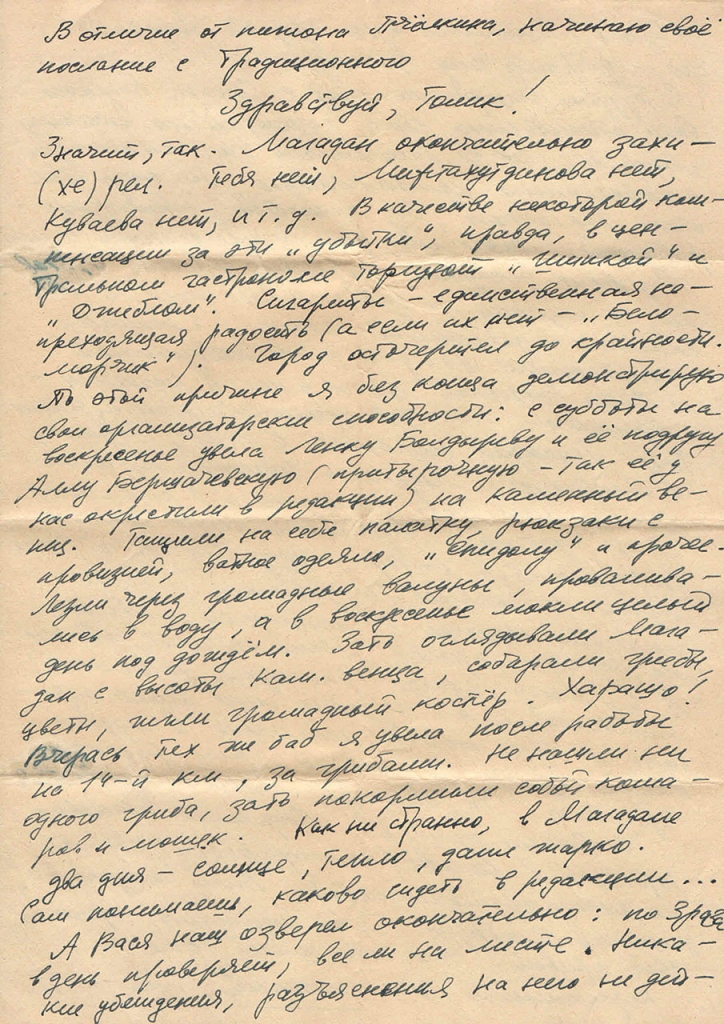 В отличие от пижона Пчёлкина, начинаю своё
послание с традиционного
Здравствуй, Толик!
Значит, так. Магадан окончательно захи-
(хе) рел. Тебя нет, Мифтахутдинова нет,
Куваева нет, и т.д. В качестве некоторой ком-
пенсации за эти „убытки", правда, в цен-
тральном гастрономе торгуют „Шипкой" и
„Джебелом". Сигареты – единственная не-
преходящая радость (а если их нет – „Бело-
морчик"). Город осточертел до крайности.
По этой причине я без конца демонстрирую
свои организаторские способности: с субботы на
воскресенье увела Ленку Болдыреву и её подругу
Аллу (притырочную – так её у
нас окрестили в редакции) на каменный ве-
нец. Тащили на себе палатку, рюкзаки с
провизией, ватное одеяло, „Спидолу" и прочее.
Лезли через громадные валуны, провалива-
лись в воду, а в воскресенье мокли целый
день под дождём. Зато оглядывали Мага-
дан с высоты Кам. венца, собирали грибы,
цветы, жгли громадный костёр. Харашо!
Вчерась тех же баб я увела после работы
на 14-й км, за грибами. Не нашли ни
одного гриба, зато покормили собой кома-
ров и мошек. Как ни странно, в Магадане
два дня – солнце, тепло, даже жарко.
Сам понимаешь, каково сидеть в редакции...
А Вася наш озверел окончательно: по 3 раза
в день проверяет, все ли на месте. Ника-
кие убеждения, разъяснения на него не дей-